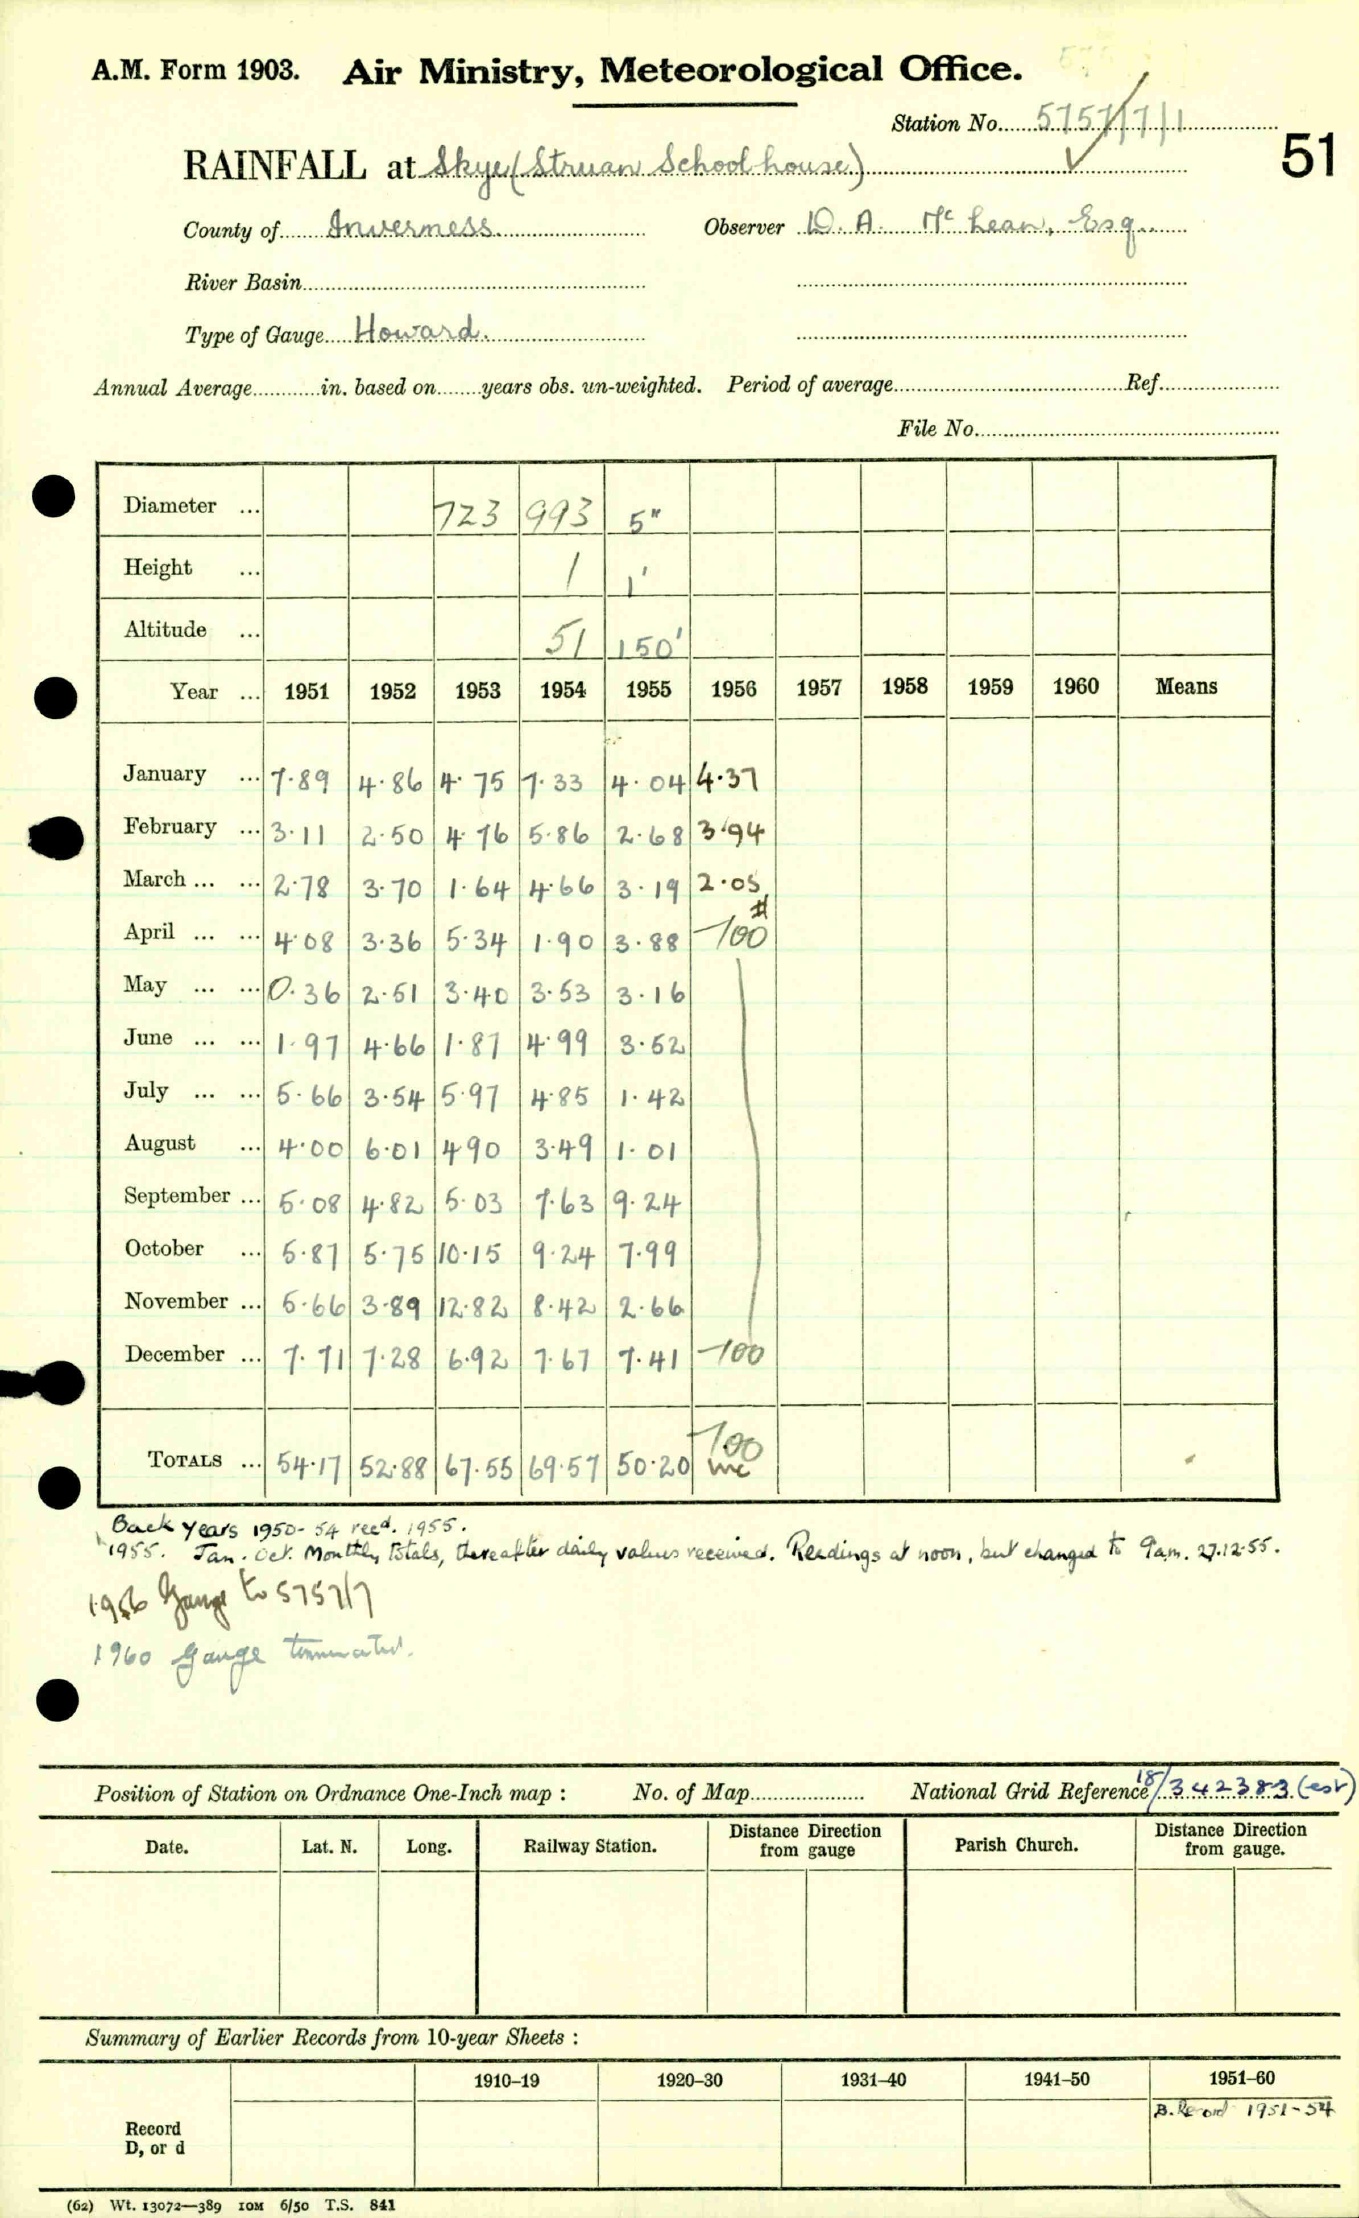 A.M. Form 1903. Air Ministry, Meteorological Office.
Station No. 5757/7/1
51
RAINFALL at Skye (Struan Schoolhouse)
County of Inverness. Observer D. A. McLean, Esq.
River Basin
Type of Gauge Howard.
Annual Average in. based on years obs. un-weighted. Period of average Ref.
File No.
Diameter ... 723 993 5"
Height ... 1 1'
Altitude ... 51 150'
Year ... 1951 1952 1953 1954 1955 1956 1957 1958 1959 1960 Means
January ... 7.89 4.86 4.75 7.33 4.04 4.37
February ... 3.11 2.50 4.76 5.86 2.68 3.94
March ... ... 2.78 3.70 1.64 4.66 3.19 2.05
April ... ... 4.08 3.36 5.34 1.90 3.88 -100 #
May ... ... 0.36 2.51 3.40 3.53 3.16
June ... ... 1.97 4.66 1.87 4.99 3.52
July ... ... 5.66 3.54 5.97 4.85 1.42
August ... 4.00 6.01 490 3.49 1.01
September ... 5.08 4.82 5.03 7.63 9.24
October ... 5.87 5.75 10.15 9.24 7.99
November ... 5.66 3.89 12.82 8.42 2.66
December ... 7.71 7.28 6.92 7.67 7.41 -100
TOTALS ... 54.17 52.88 67.55 69.57 50.20 -100 inc
Back years 1950-54 recd. 1955.
1955. Jan.-Oct. Monthly totals, thereafter daily values received. Readings at noon, but changed to 9am. 27.12.55.
1956 Gauge to 5757/7
1960 Gauge terminated.
Position of Station on Ordnance One-Inch map : No. of Map National Grid Reference 18/342383 (est)
Date. Lat. N. Long. Railway Station. Distance Direction from gauge Parish Church. Distance Direction from gauge.
Summary of Earlier Records from 10-year Sheets :
1910–19 1920–30 1931–40 1941–50 1951–60
B. Record 1951-54
Record
D, or d
(62) Wt. 13072—389 10M 6/50 T.S. 841